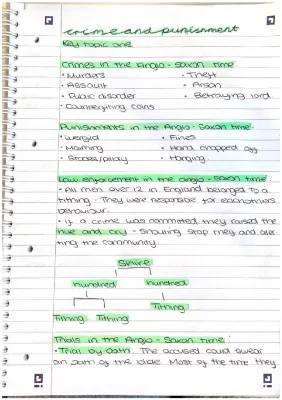 crime and punishment
Key topic one
Crimes in the Anglo-Saxon time
• Murders • Theft
• Assault • Arson
• Public disorder • Betraying lord
• Counterfeiting coins
Punishments in the Anglo-Saxon time
• Wergild • Fines
• Maiming • Hand chopped off
• Stocks/pillory • Hanging
Law enforcement in the Anglo-Saxon time
• All men over 12 in England belonged to a
tithing. They were responsible for eachothers
behaviour.
• If a crime was committed they raised the
hue and cry - Shouting stop and
ting the community.
Shire
hundred hundred
Tithing
Tithing Tithing
Trials in the Anglo-Saxon time
• Trial by Oath. The accused could swear
an oath of the Most of the time they